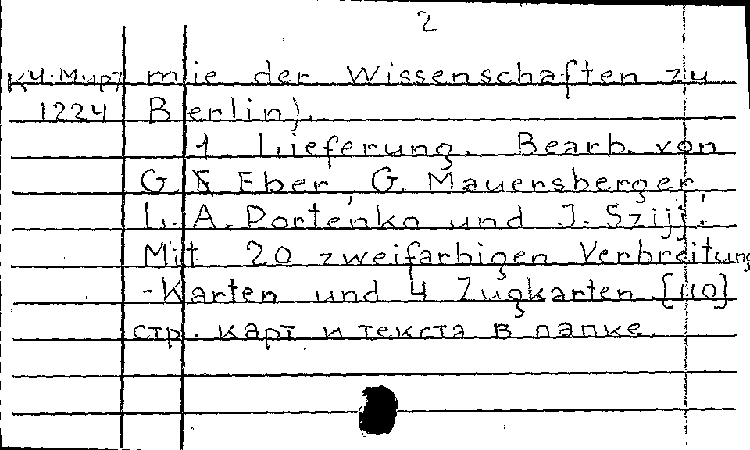 2
КЧ. Мирт mie der Wissenschaften zu
1224 Berlin).
1 Lieferung. Bearb. von
G. Eber, G. Mauersberger,
L. A. Portenko und J. Szijj.
Mit 20 zweifarbigen Verbreitung
-Karten und 4 Zugkarten [110]
стр. карт и текста в папке.